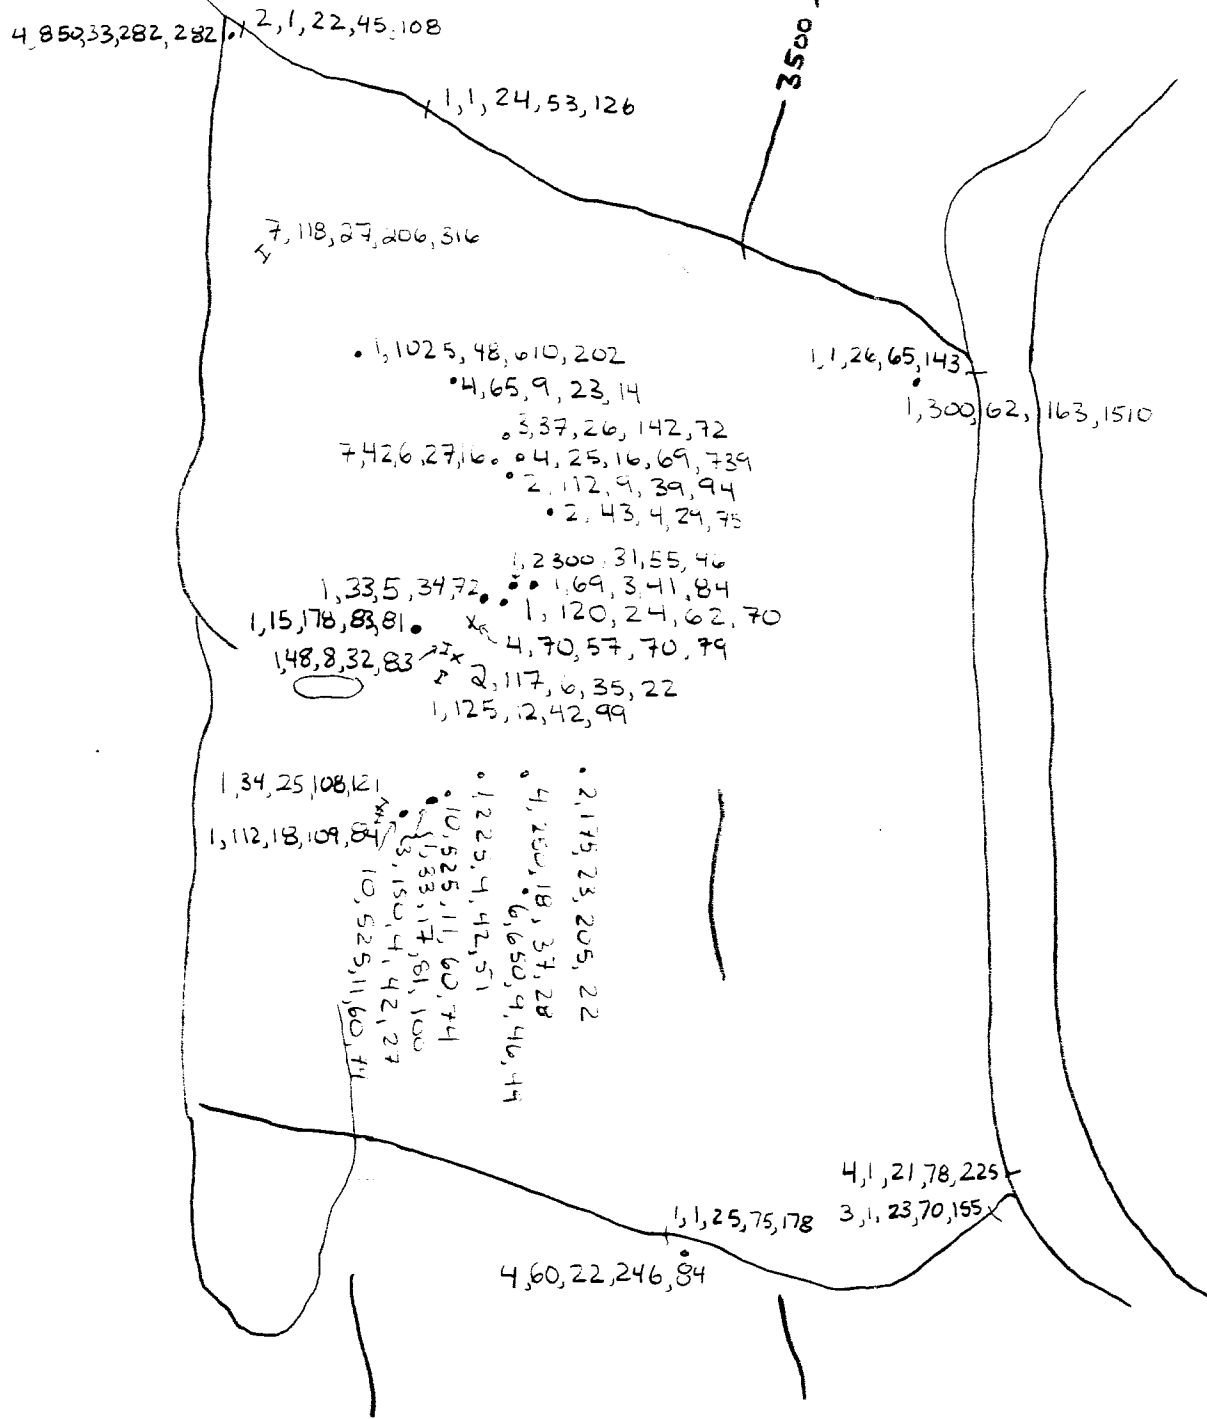 3500
4,850,33,282,282
2,1,22,45,108
1,1,24,53,126
7,118,27,206,316
1,1025,48,610,202
1,1,26,65,143
4,65,9,23,14
1,300,62,163,1510
3,37,26,142,72
7,42,6,27,16
4,25,16,69,739
2,112,9,39,94
2,43,4,29,75
1,2300,31,55,46
1,33,5,34,72
1,69,3,41,84
1,120,24,62,70
1,15,178,83,81
4,70,57,70,79
1,48,8,32,83
2,117,6,35,22
1,125,12,42,99
1,34,25,108,121
1,112,18,109,84
10,525,11,60,74
3,150,4,42,27
1,33,17,81,100
10,525,11,60,74
1,225,4,42,51
6,650,9,46,49
18,37,28
2,175,23,205,22
4,1,21,78,225
3,1,23,70,155
1,1,25,75,178
4,60,22,246,84